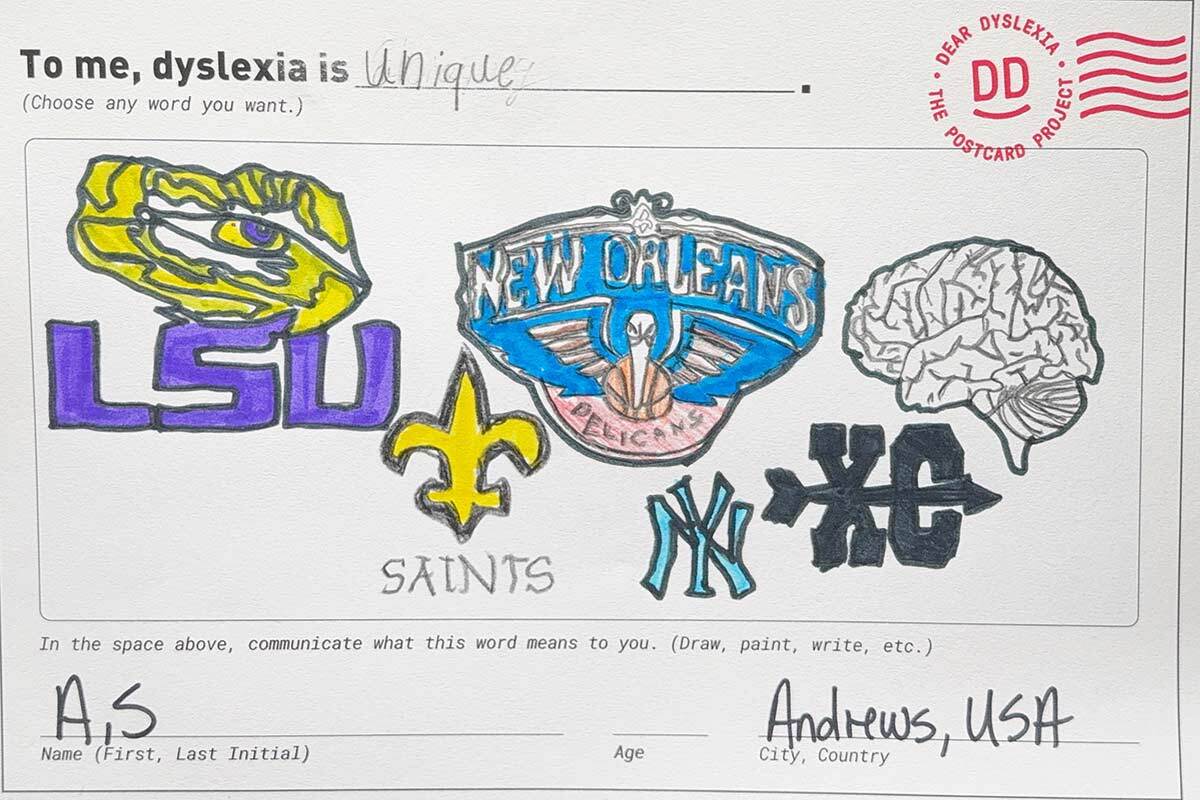 To me, dyslexia is unique.
(Choose any word you want.)
• DEAR DYSLEXIA • THE POSTCARD PROJECT
DD
LSU
NEW ORLEANS
PELICANS
SAINTS
NY
XC
In the space above, communicate what this word means to you. (Draw, paint, write, etc.)
A,S
Andrews, USA
Name (First, Last Initial)
Age
City, Country